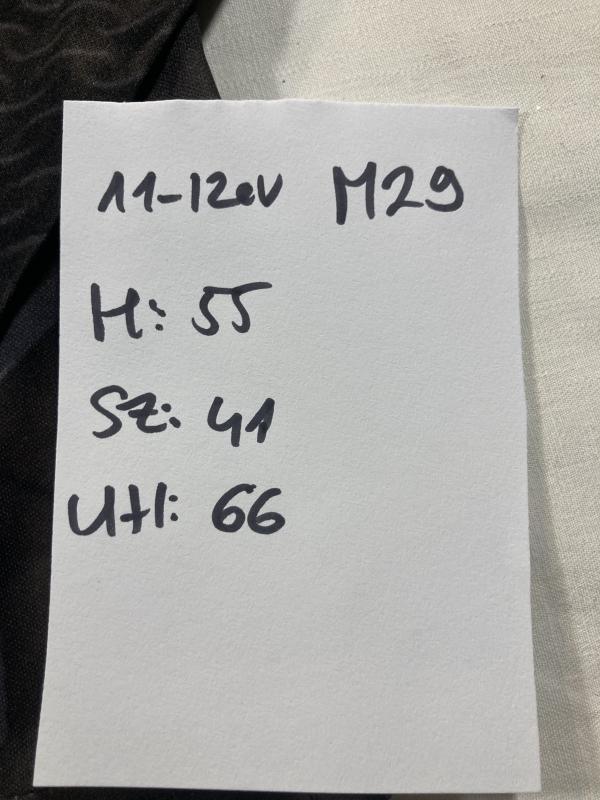 11-12év M29
H: 55
Sz: 41
Utl: 66